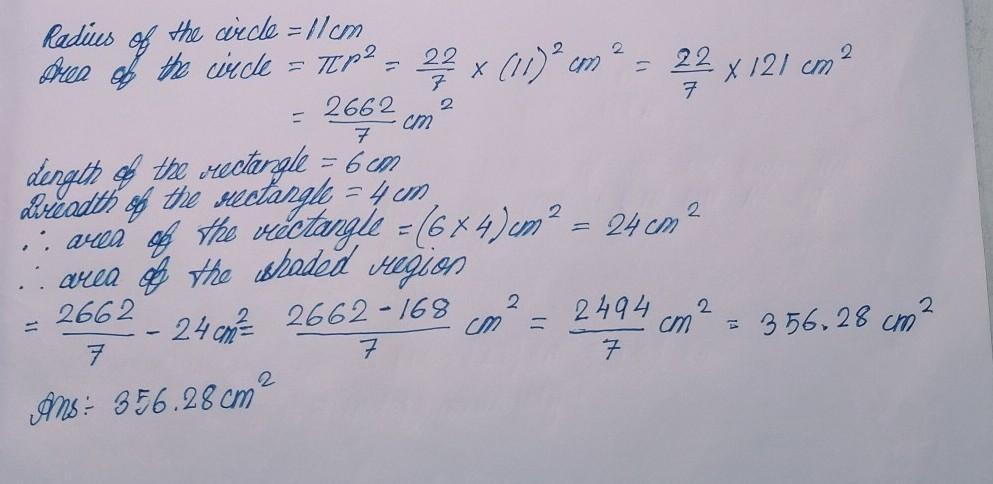 Radius of the circle = 11cm
Area of the circle = πr² = 22/7 × (11)² cm² = 22/7 × 121 cm²
= 2662/7 cm²
Length of the rectangle = 6cm
Breadth of the rectangle = 4cm
∴ area of the rectangle = (6×4)cm² = 24cm²
∴ area of the shaded region
= 2662/7 - 24cm² = 2662-168/7 cm² = 2494/7 cm² = 356.28 cm²
Ans:- 356.28cm²